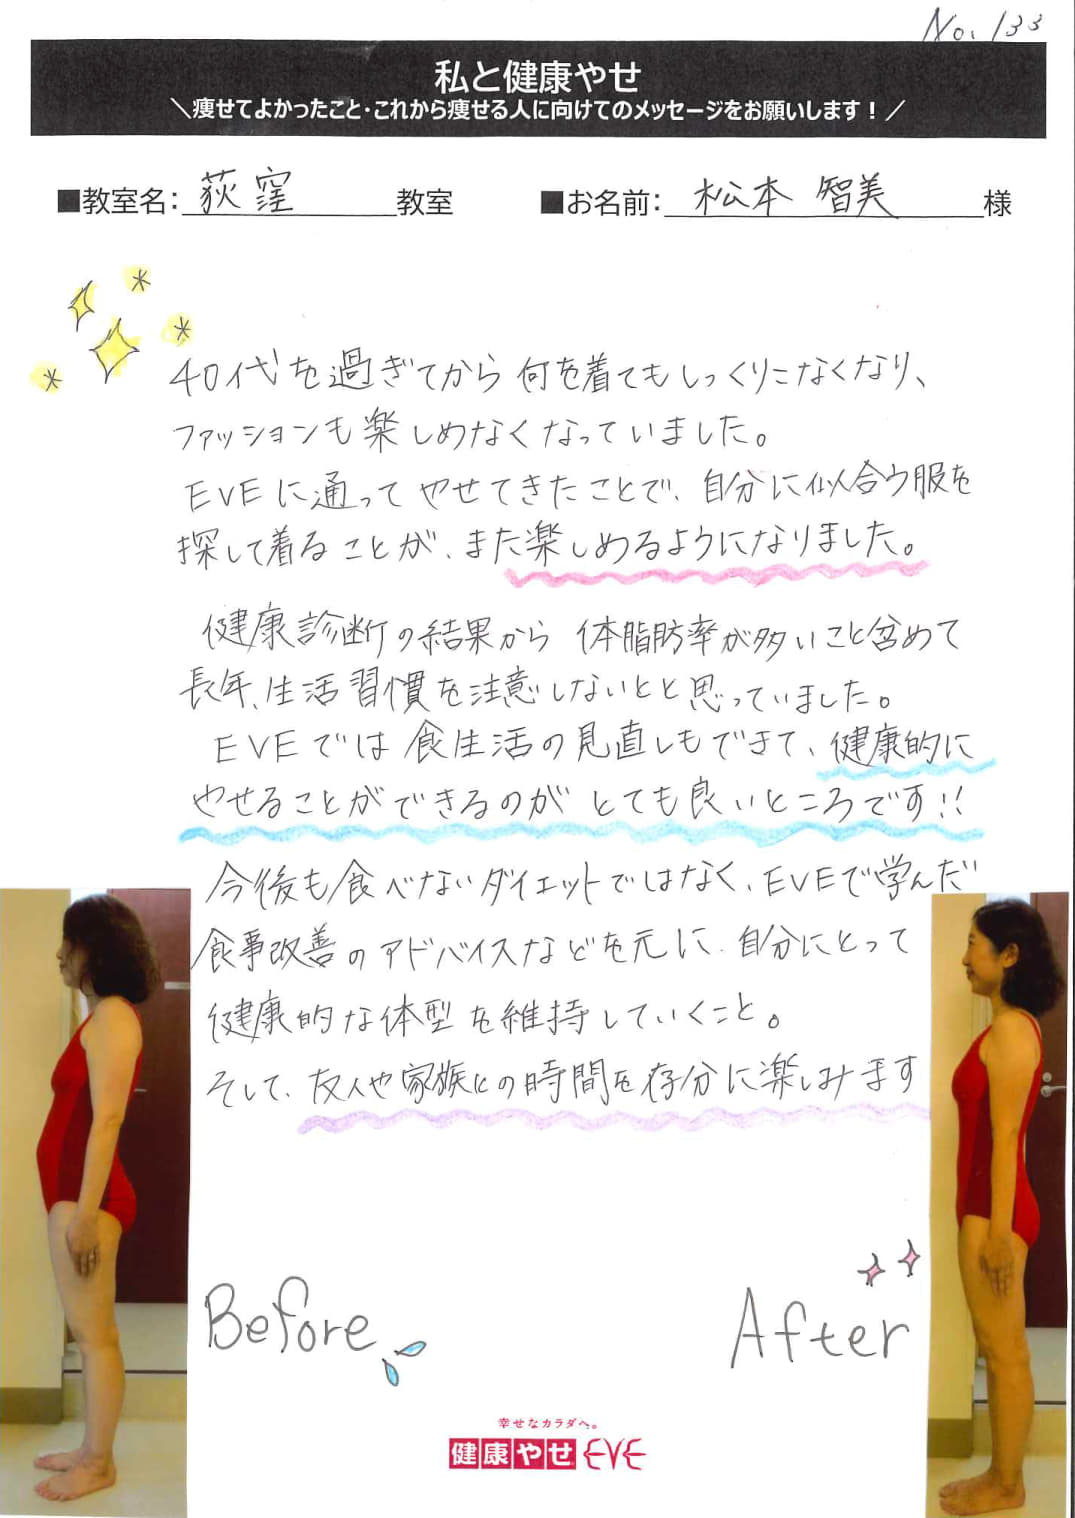 No. 133
私と健康やせ
＼痩せてよかったこと・これから痩せる人に向けてのメッセージをお願いします！／
■教室名: 荻窪 教室 ■お名前: 松本 智美 様
40代を過ぎてから何を着てもしっくりこなくなり、
ファッションも楽しめなくなっていました。
EVEに通ってやせてきたことで、自分に似合う服を
探して着ることが、また楽しめるようになりました。
健康診断の結果から 体脂肪率が多いこと含めて
長年、生活習慣を注意しないとと思っていました。
EVEでは食生活の見直しもできて、健康的に
やせることができるのがとても良いところです!!
今後も食べないダイエットではなく、EVEで学んだ
食事改善のアドバイスなどを元に、自分にとって
健康的な体型を維持していくこと。
そして、友人や家族との時間を存分に楽しみます
Before
After
幸せなカラダへ。
健康やせEVE